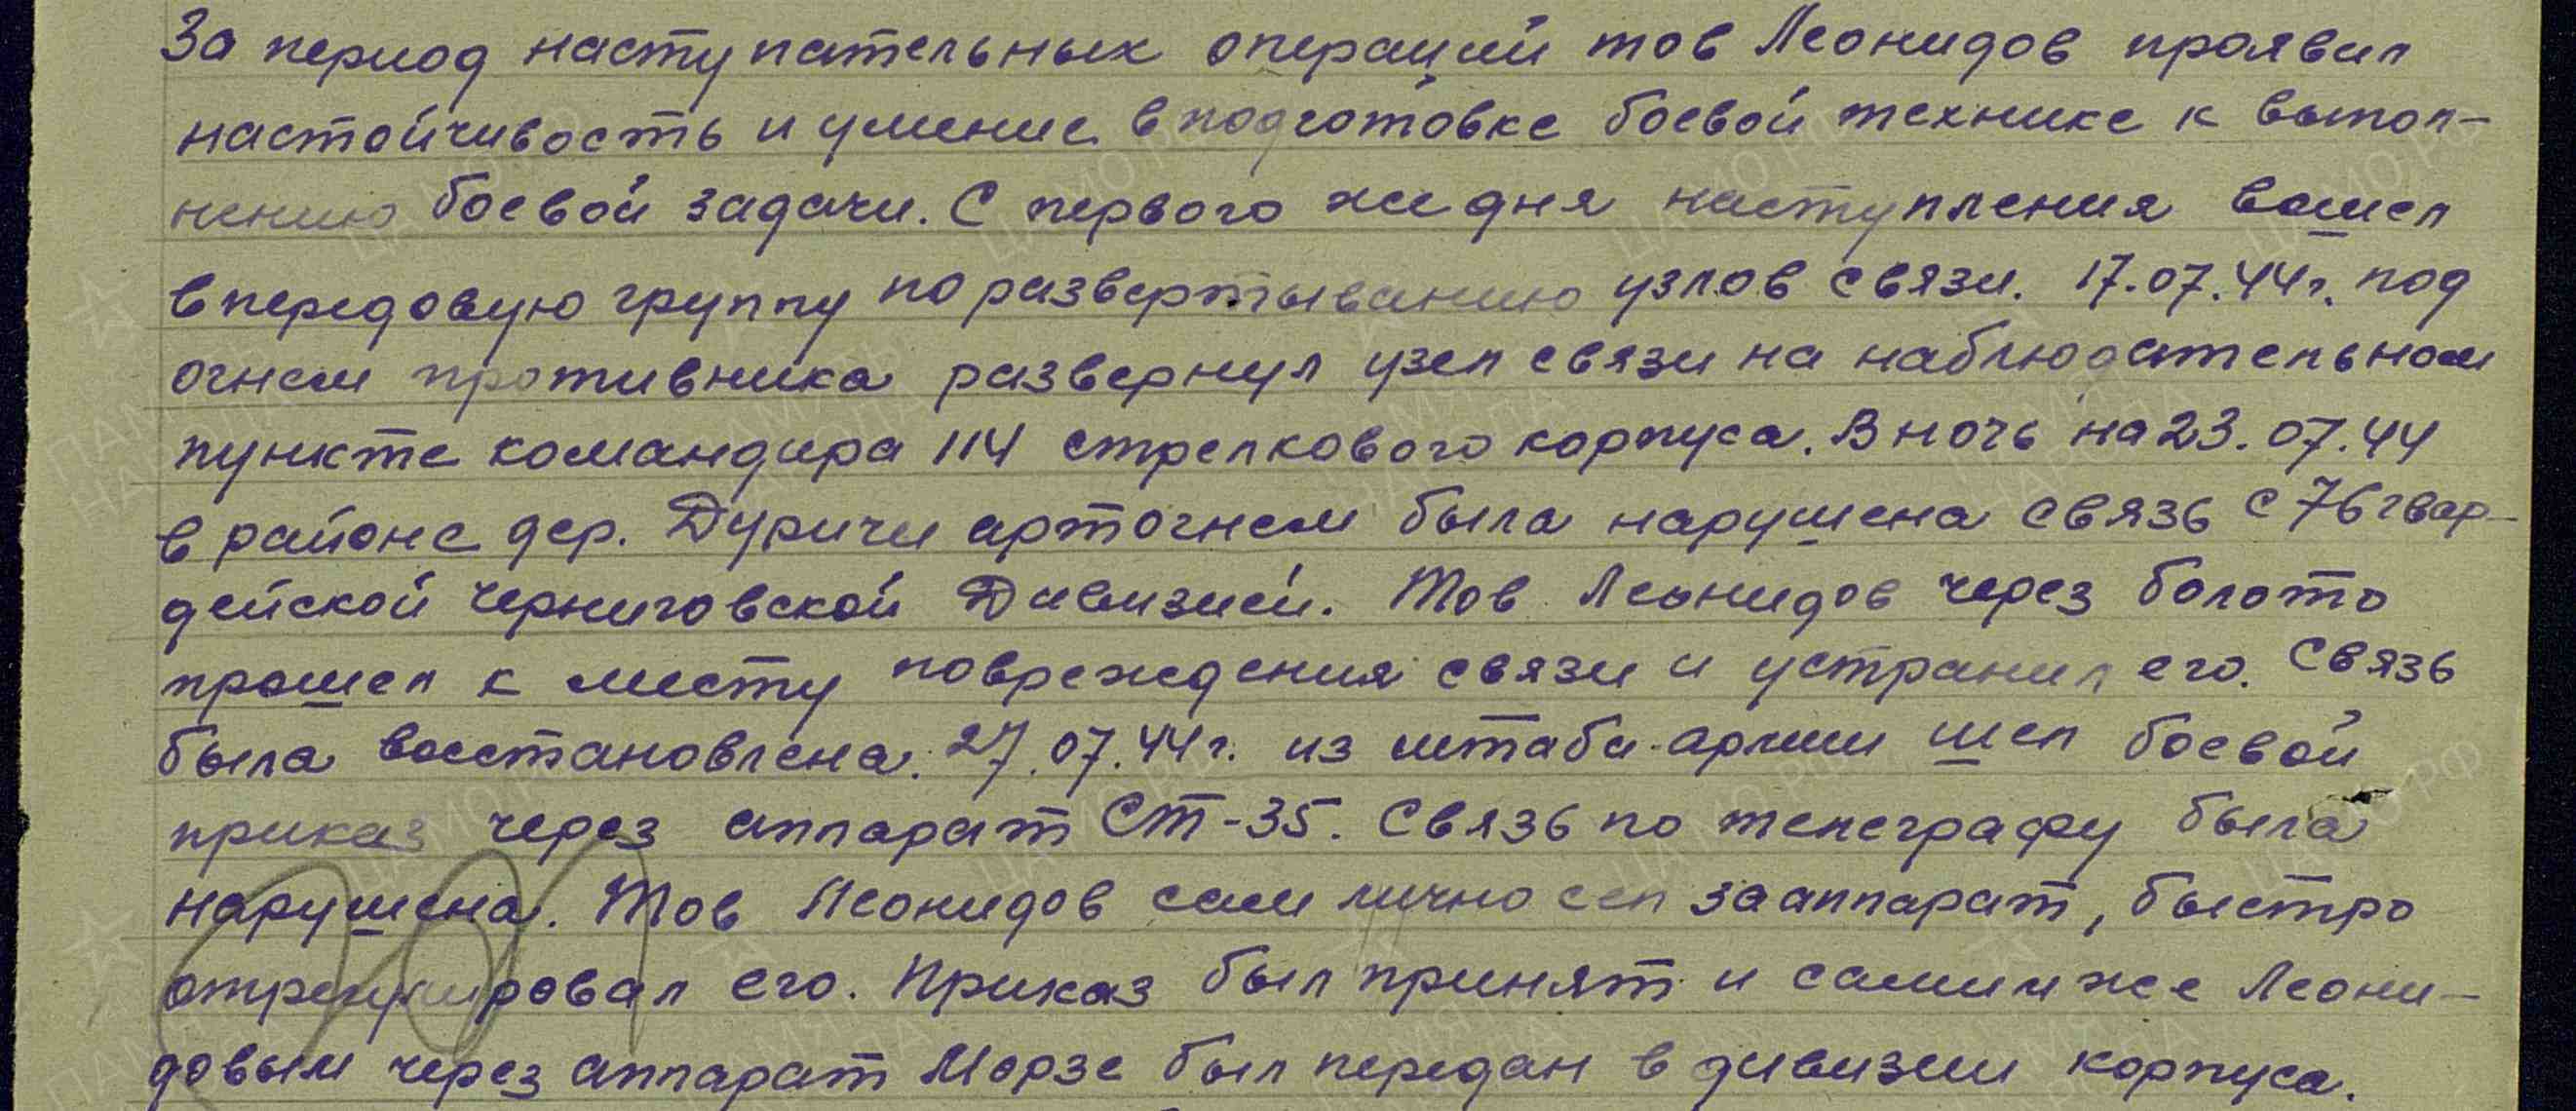 За период наступательных операций тов Леонидов проявил
настойчивость и умение в подготовке боевой технике к выпол-
нению боевой задачи. С первого же дня наступления вошел
в передовую группу по развертыванию узлов связи. 17.07.44г. под
огнем противника развернул узел связи на наблюдательном
пункте командира 114 стрелкового корпуса. В ночь на 23.07.44
в районе дер. Дуричи артогнем была нарушена связь с 76 гвар-
дейской Черниговской Дивизией. Тов Леонидов через болото
прошел к месту повреждения связи и устранил его. Связь
была восстановлена. 27.07.44г. из штаба армии шел боевой
приказ через аппарат СТ-35. Связь по телеграфу была
нарушена. Тов Леонидов сам лично сел за аппарат, быстро
отрегулировал его. Приказ был принят и самим же Леони-
довым через аппарат Морзе был передан в дивизии корпуса.